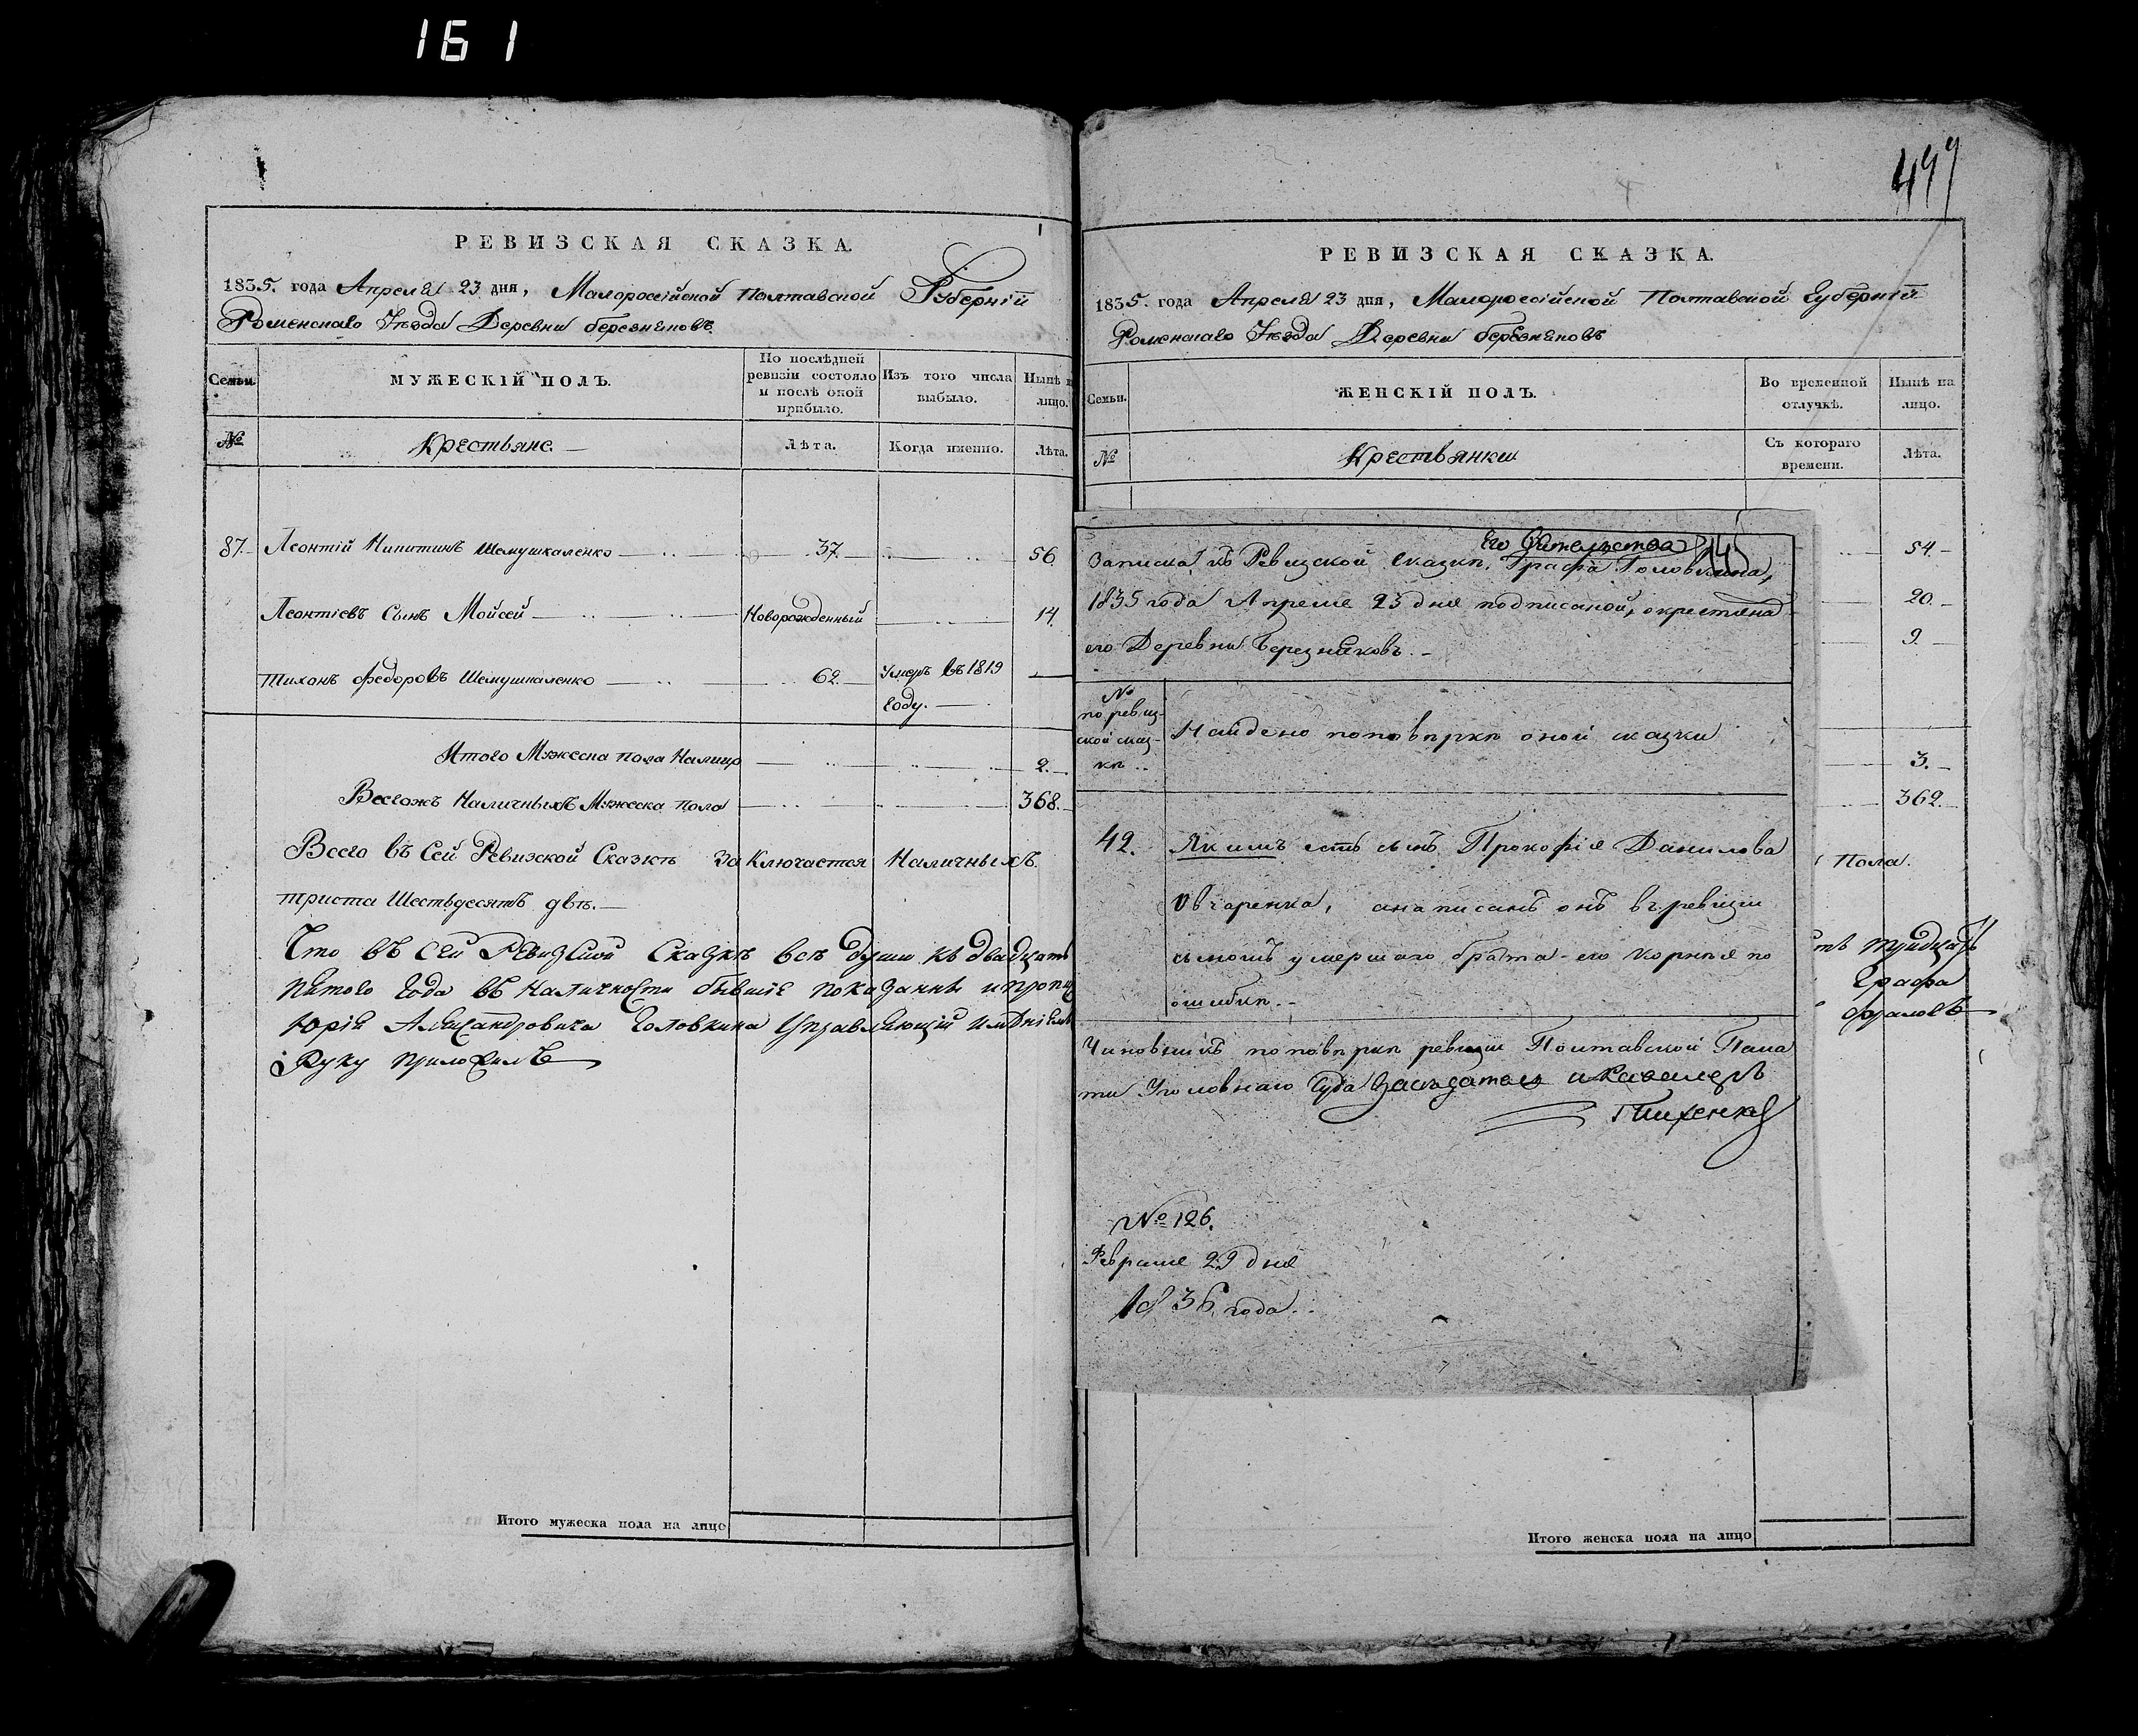 161
РЕВИЗСКАЯ СКАЗКА.
1835. года Апреля 23 дня, Малороссійской Полтавской Губерній
Роменскаго Уѣзда Деревни березняковъ.
Семьи.
МУЖЕСКІЙ ПОЛЪ.
По послѣдней ревизіи состояло и послѣ оной прибыло.
Изъ того числа выбыло.
Нынѣ на лицо.
№
Крестьяне.
Лѣта.
Когда именно.
Лѣта.
87. Леонтій Никитинъ Шемушкаленко 37 56
Леонтіевъ Сынъ Мойсей Новорожденный 14
Тихонъ Федоровъ Шемушкаленко 62 Умеръ въ 1819
году.
Итого Мужеска пола Налицо 2.
Всегожъ Наличныхъ Мужеска пола 368.
Всего въ Сей Ревизской Сказкѣ заключается Наличныхъ
триста Шестьдесятъ двѣ.
Что въ сей Ревизской Сказкѣ всѣ души къ двадцать
Пятого Года въ Наличности бывшіе показанны
Юрія Александровича Головкина Управляющій Имѣніемъ
Руку приложилъ
Итого мужеска пола на лицо
499
РЕВИЗСКАЯ СКАЗКА.
1835. года Апреля 23 дня, Малороссійской Полтавской Губерній
Роменскаго Уѣзда Деревни березняковъ
Семьи.
ЖЕНСКІЙ ПОЛЪ.
Во временной отлучкѣ.
Нынѣ на лицо.
№
Крестьянки
Съ котораго времени.
Лѣта.
54.
20.
9.
3.
362.
Пола.
Графа
Его Сіятельства
Записка къ Ревизской сказкѣ, Графа Головкина,
1835 года Апреля 23 дня подписаной, о крестянахъ
его Деревни Березняковъ.
№
по ревиз-
ской сказ-
кѣ
Найдено поповѣркѣ оной сказки
42. Якимъ есть сынъ Прокофія Данилова
Овчаренка, анаписанъ онъ въ ревизіи
сыномъ умершаго брата его Корнѣя по
ошибкѣ.
Чиновникъ поповѣркѣ ревизіи Полтавской Пала
ты Уголовнаго Суда Засѣдатель и Кавалеръ
№ 126.
Февраля 29 дня
1836 года.
Итого женска пола на лицо